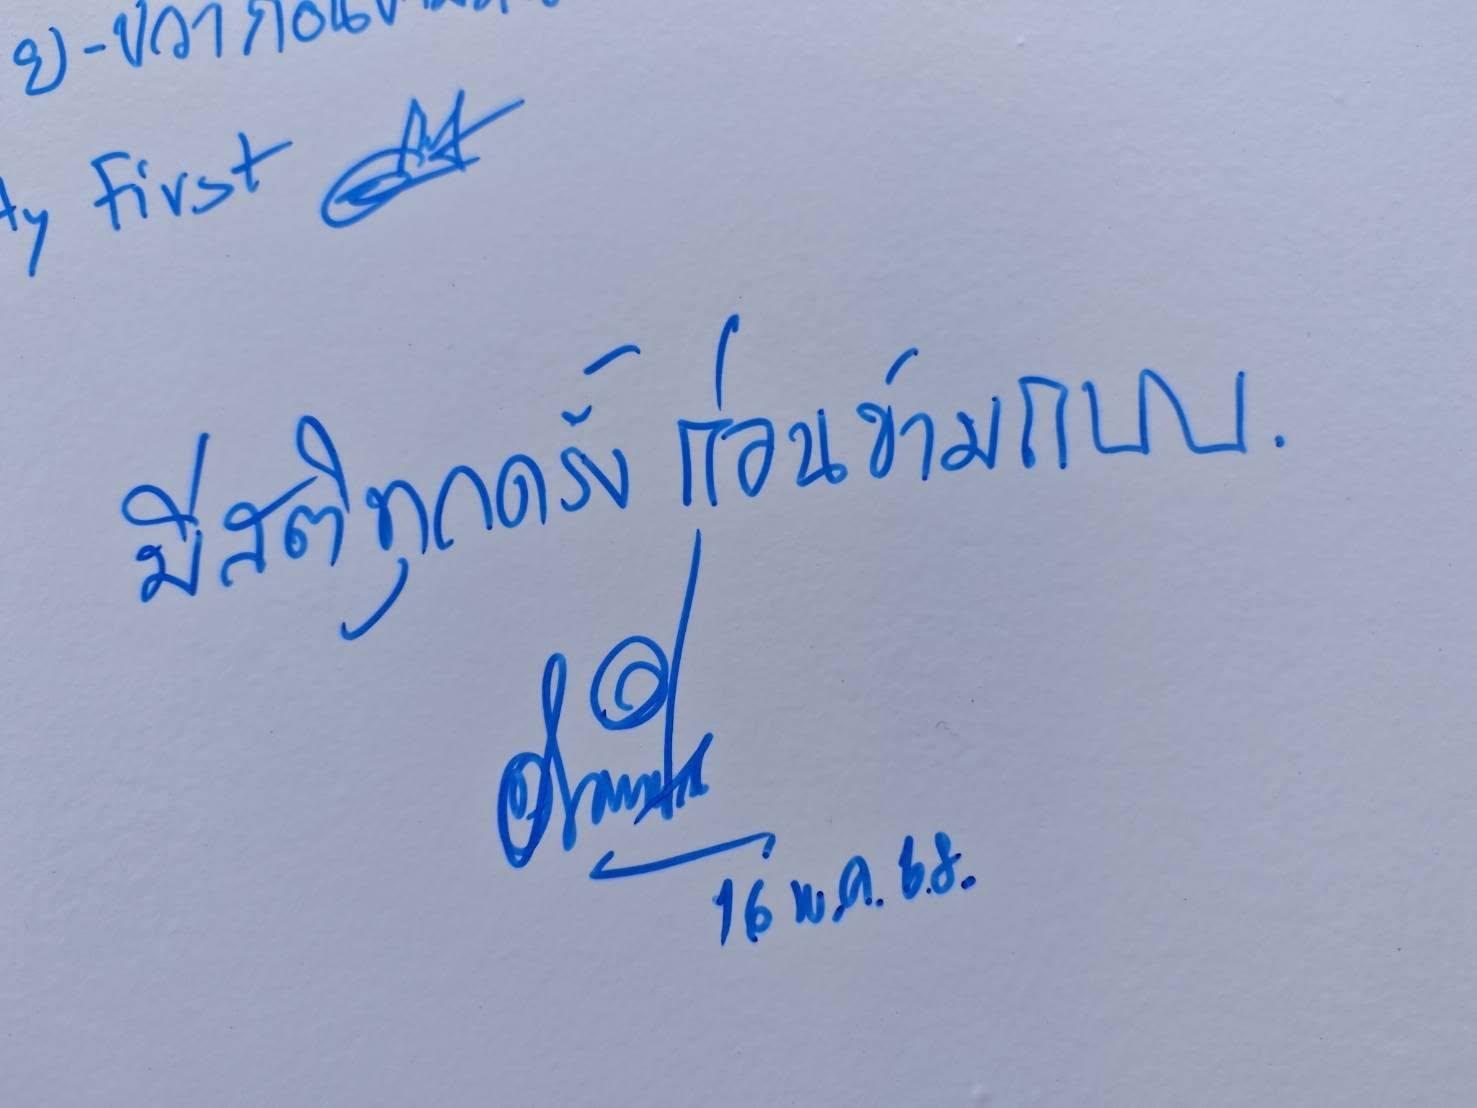 ย-ขวา ก่อนข้าม
ty First
มีสติทุกครั้ง ก่อนข้ามถนน.
16 พ.ค. ๖๘.